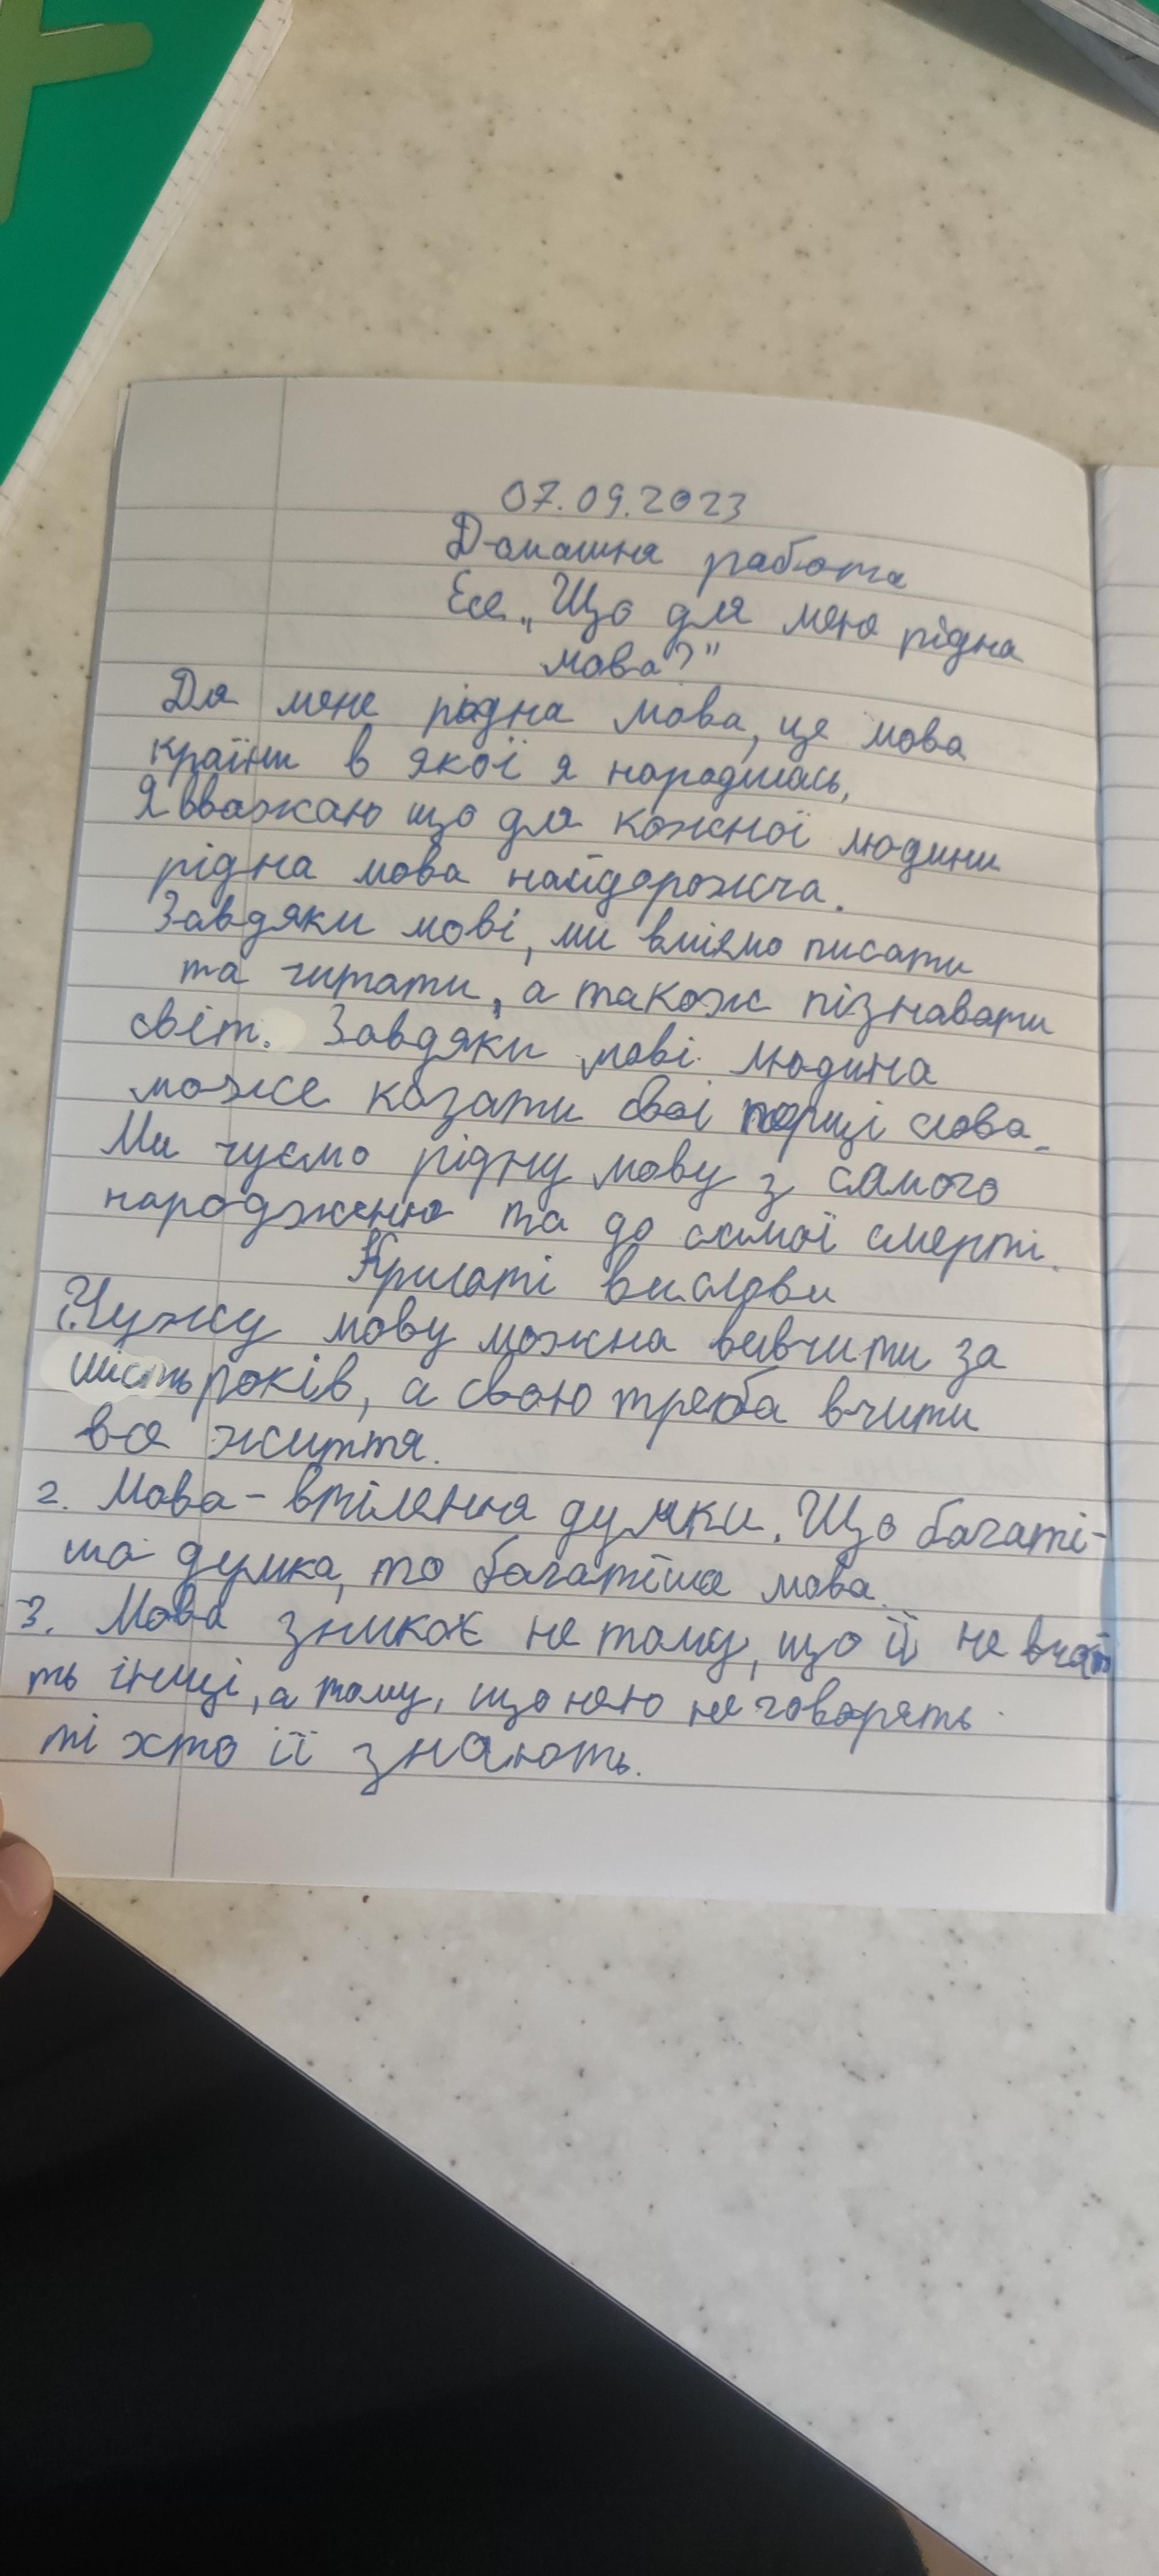 07.09.2023
Домашня работа
Есе „Що для мене рідна
мова?"
Для мене рідна мова, це мова
країни в якої я народилась,
Я вважаю що для кожної людини
рідна мова найдорожча.
Завдяки мові, ми вміємо писати
та читати, а також пізнавати
світ. Завдяки мові людина
може казати свої перші слова.
Ми чуємо рідну мову з самого
народження та до самої смерті.
Крилаті вислови
1. Чужу мову можна вивчити за
шість років, а свою треба вчити
все життя.
2. Мова - втілення думки. Що багаті-
ша думка, то багатіша мова.
3. Мова зникає не тому, що її не вчат
ть інші, а тому, що нею не говорять
ті хто її знають.